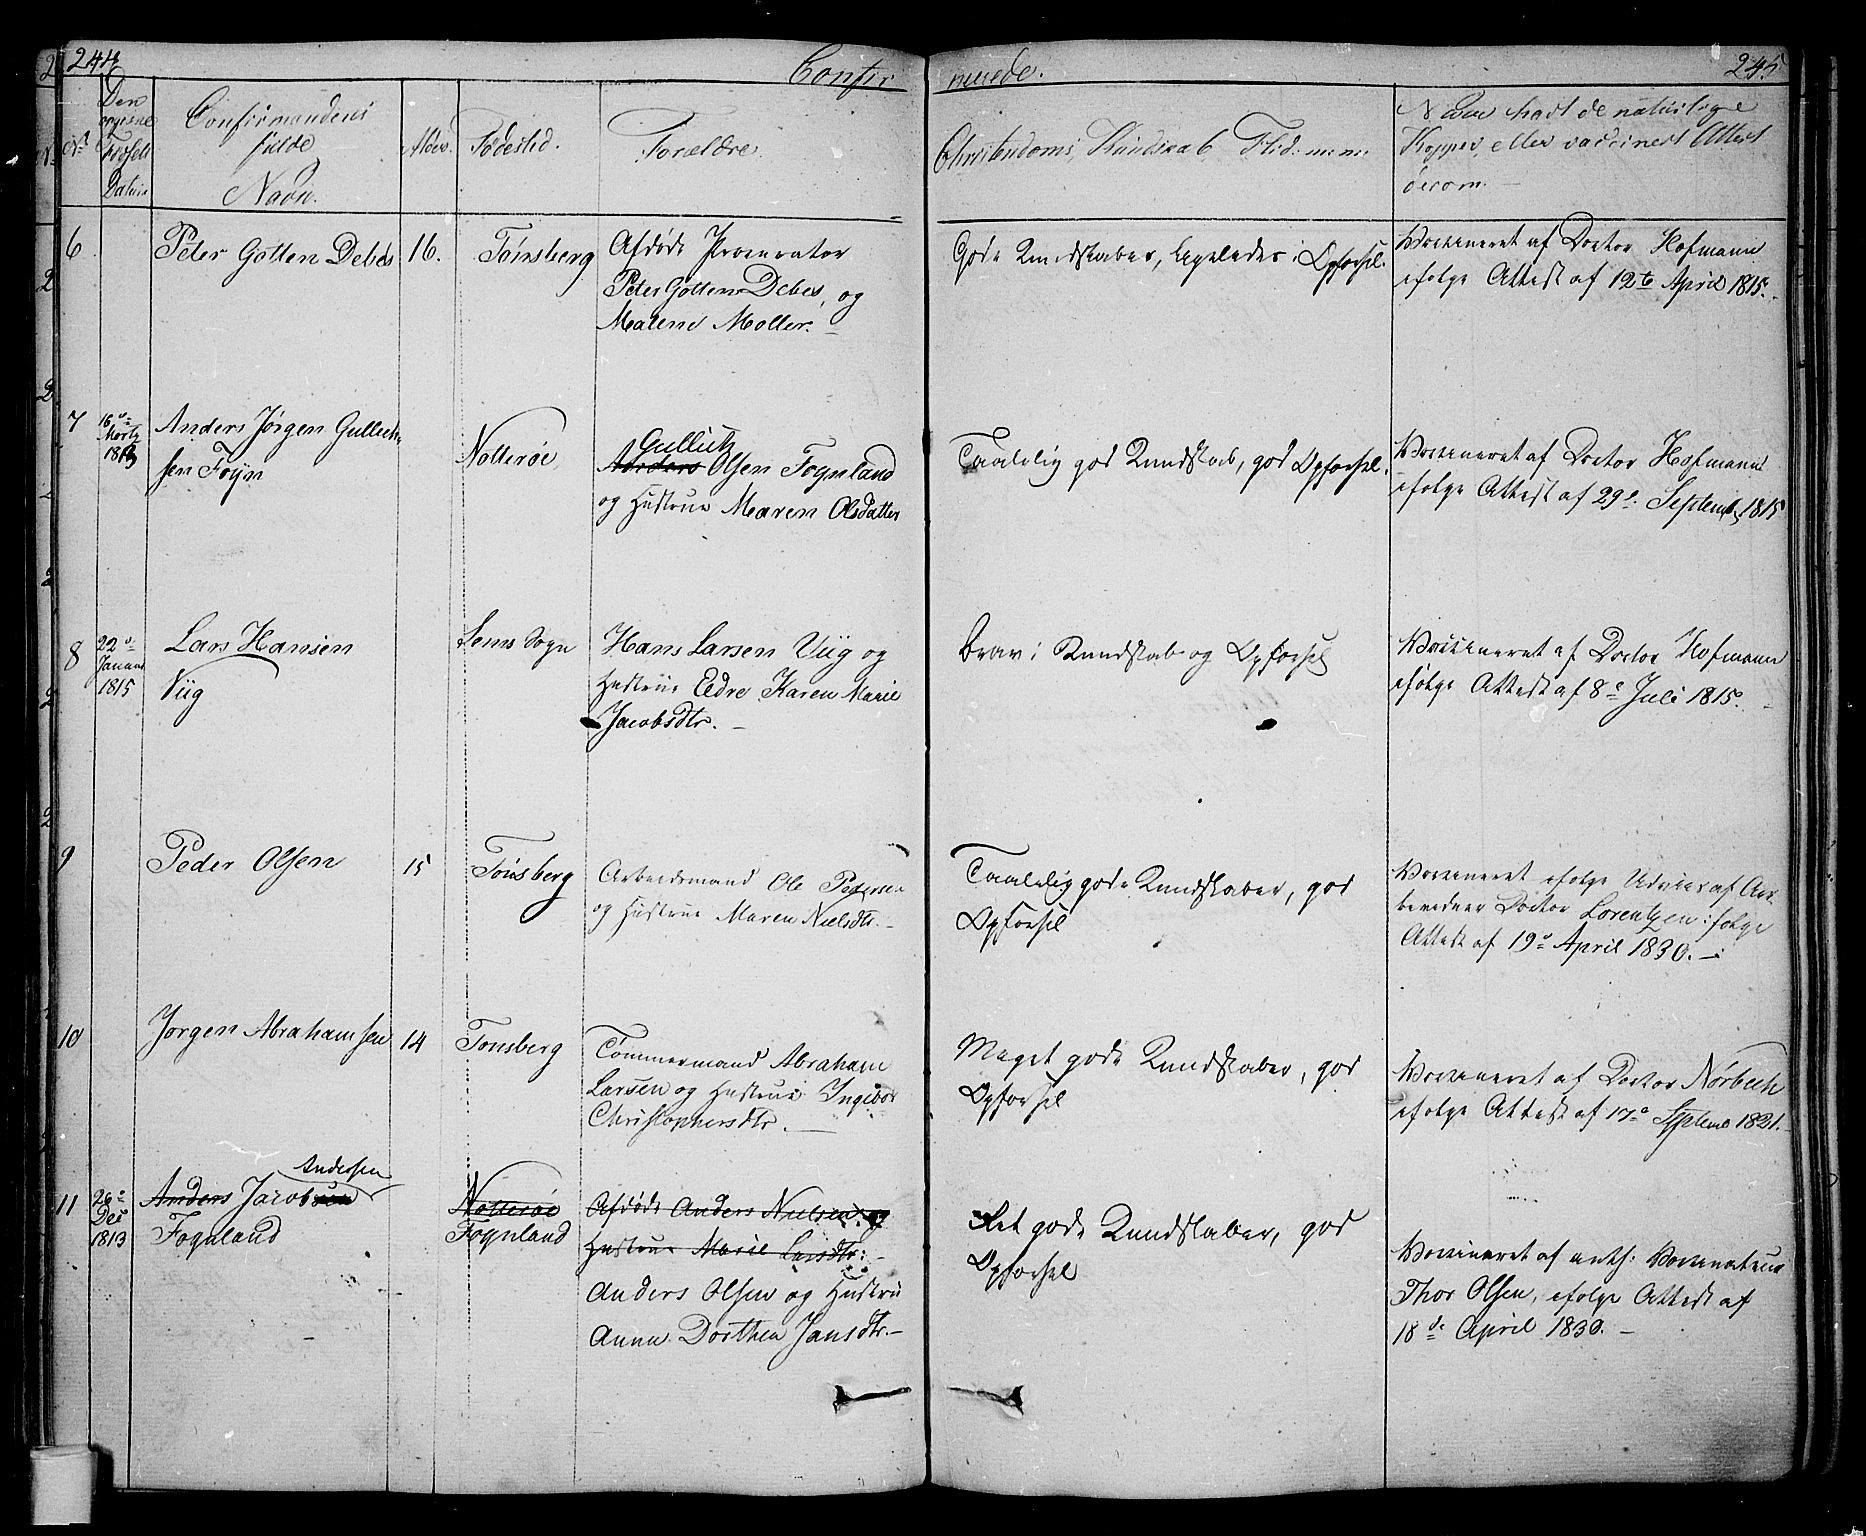 244
Confir
merede.
245
No
Den
Fødsels
Datum
Confirmandens
fulde
Navn.
Alder.
Fødested.
Forældre.
Christendoms, Kundskab, Flid
Naar havt de naturlige
Kopper, eller vaccinert Attest
derom.
6
Peter Gotten Debes
16.
Tønsberg
Afdøde Procurator
Peter Gotten Debes, og
Malene Moller.
Gode Kundskaber, ligeledes i Opførsel.
Vaccineret af Doctor Hofmann
ifølge Attest af 12te April 1815.
7
16de
Marts
1813
Anders Jørgen Gullich
sen Foÿn
Nötteröe,
Gullich
Anders Olsen Foynland
og Hustrue Maren Olsdatter
Taalelig god Kundskab, god Opførsel.
Vaccineret af Doctor Hofmann
ifølge Attest af 29de Septemb 1815
8
22de
Januar
1815
Lars Hansen
Viig
Sems Sogn
Hans Larsen Viig og
Hustrue Eldre Karen Marie
Jacobsdtr.
Brav i Kundskab og Opførsel
Vaccineret af Doctor Hofmann
ifølge Attest af 8de Juli 1815.
9
Peder Olsen
15
Tönsberg
Arbeidsmand Ole Pedersen
og Hustrue Maren Nielsdtr.
Taalelig gode Kundskaber, god
Opførsel
Vaccineret ifølge Udviis af Ar
Doctor Lorentzen ifølge
Attest af 19de April 1830.
10
Jørgen Abrahamsen
14
Tonsberg
Tömmermand Abraham
Larsen og Hustrue Ingebor
Christophersdtr.
Meget gode Kundskaber, god
Opførsel
Vaccineret af Doctor Nørbech
ifølge Attest af 17de Septemb 1821.
11
26de
Dec
1813
Andersen
Anders Jacobsen
Foynland
Nötteröe
Foynland
Afdøde Anders Nielsen og
Hustrue Marie Larsdtr:
Anders Olsen og Hustru
Anne Dorthea Jansdtr.
Ret gode Kundskaber, god
Opførsel
Vaccineret af auth: Vaccinateur
Thor Olsen, ifølge Attest af
18de April 1830.